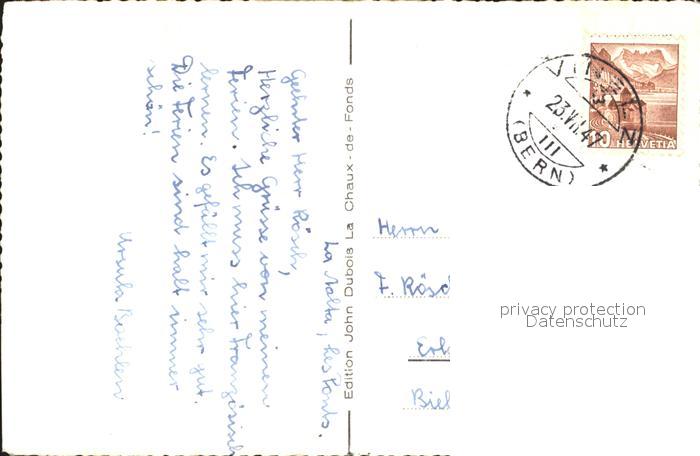 La Salta, les Ponts.
Geehrter Herr Rösch,
Herzliche Grüsse von meinen
Ferien. Ich muss hier Französisch
lernen. Es gefällt mir sehr gut.
Die Ferien sind halt immer
schön!
Ursula
Edition John Dubois La Chaux-de-Fonds
23.VII.47
III
(BERN)
HELVETIA
Herrn
F. Rösc
Erl
Biel
privacy protection
Datenschutz